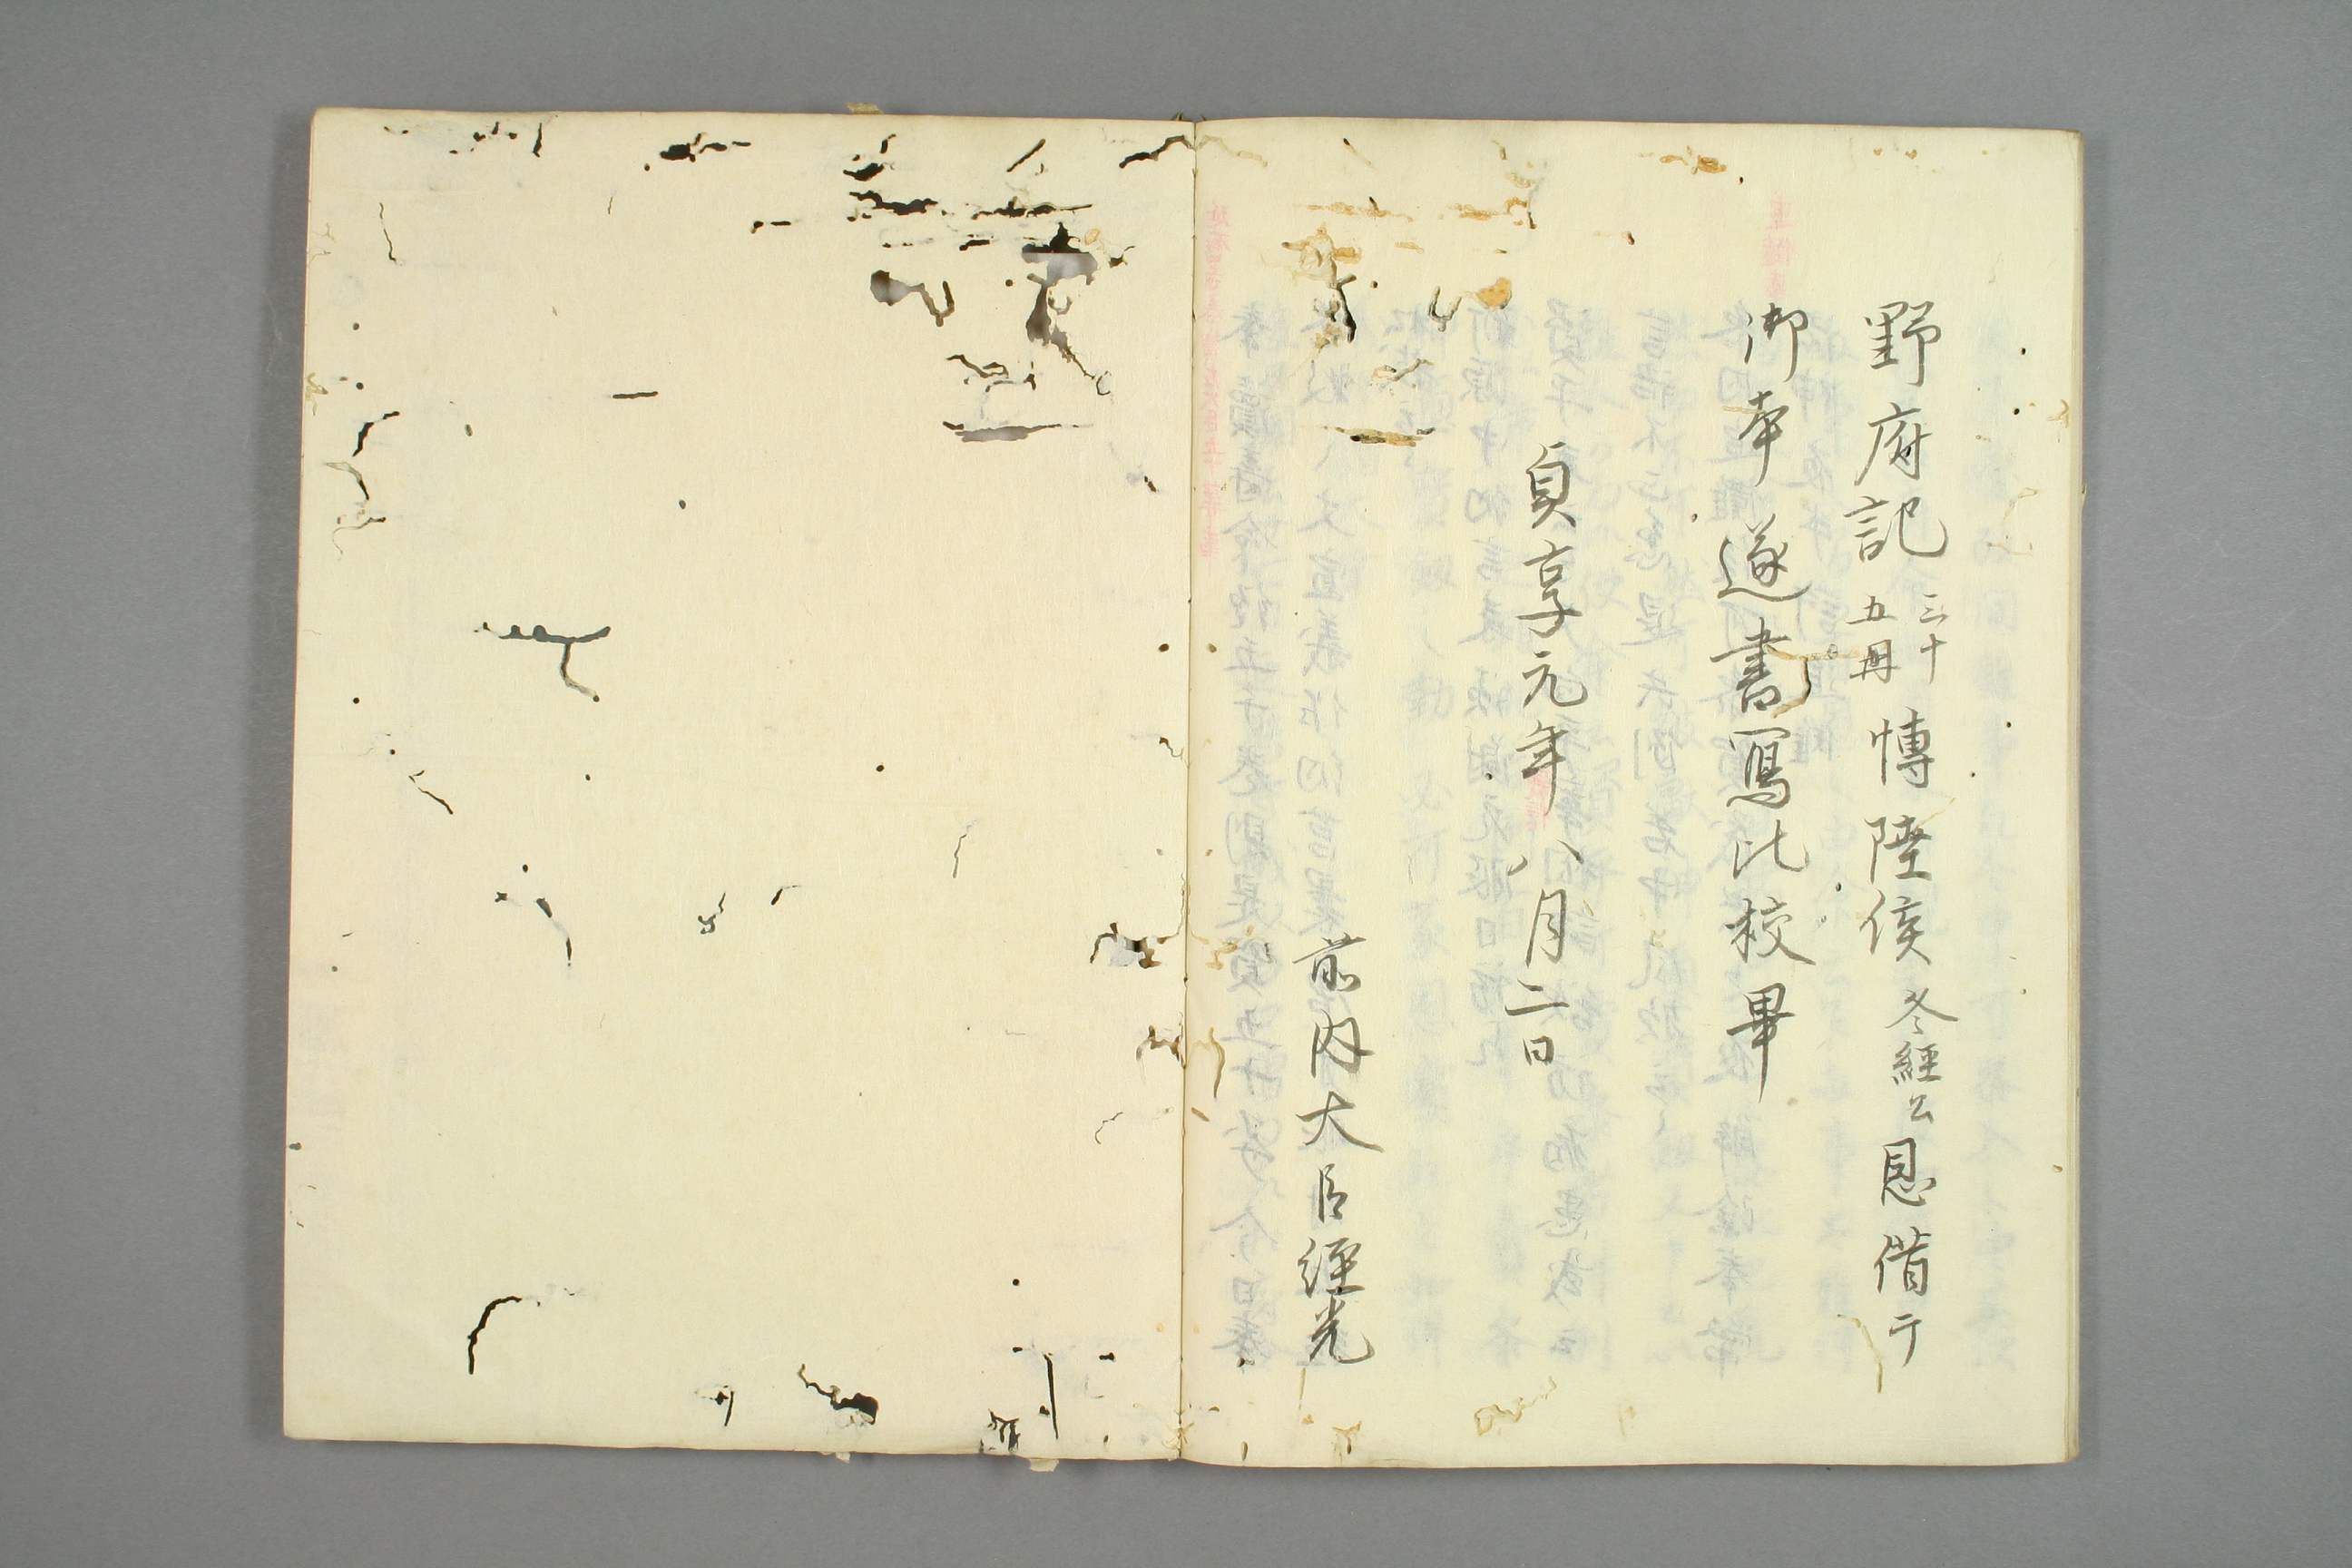 野府記三十五冊博陸侯冬經公恩借于
御本遂書寫比校畢
貞享元年八月二日
前内大臣經光